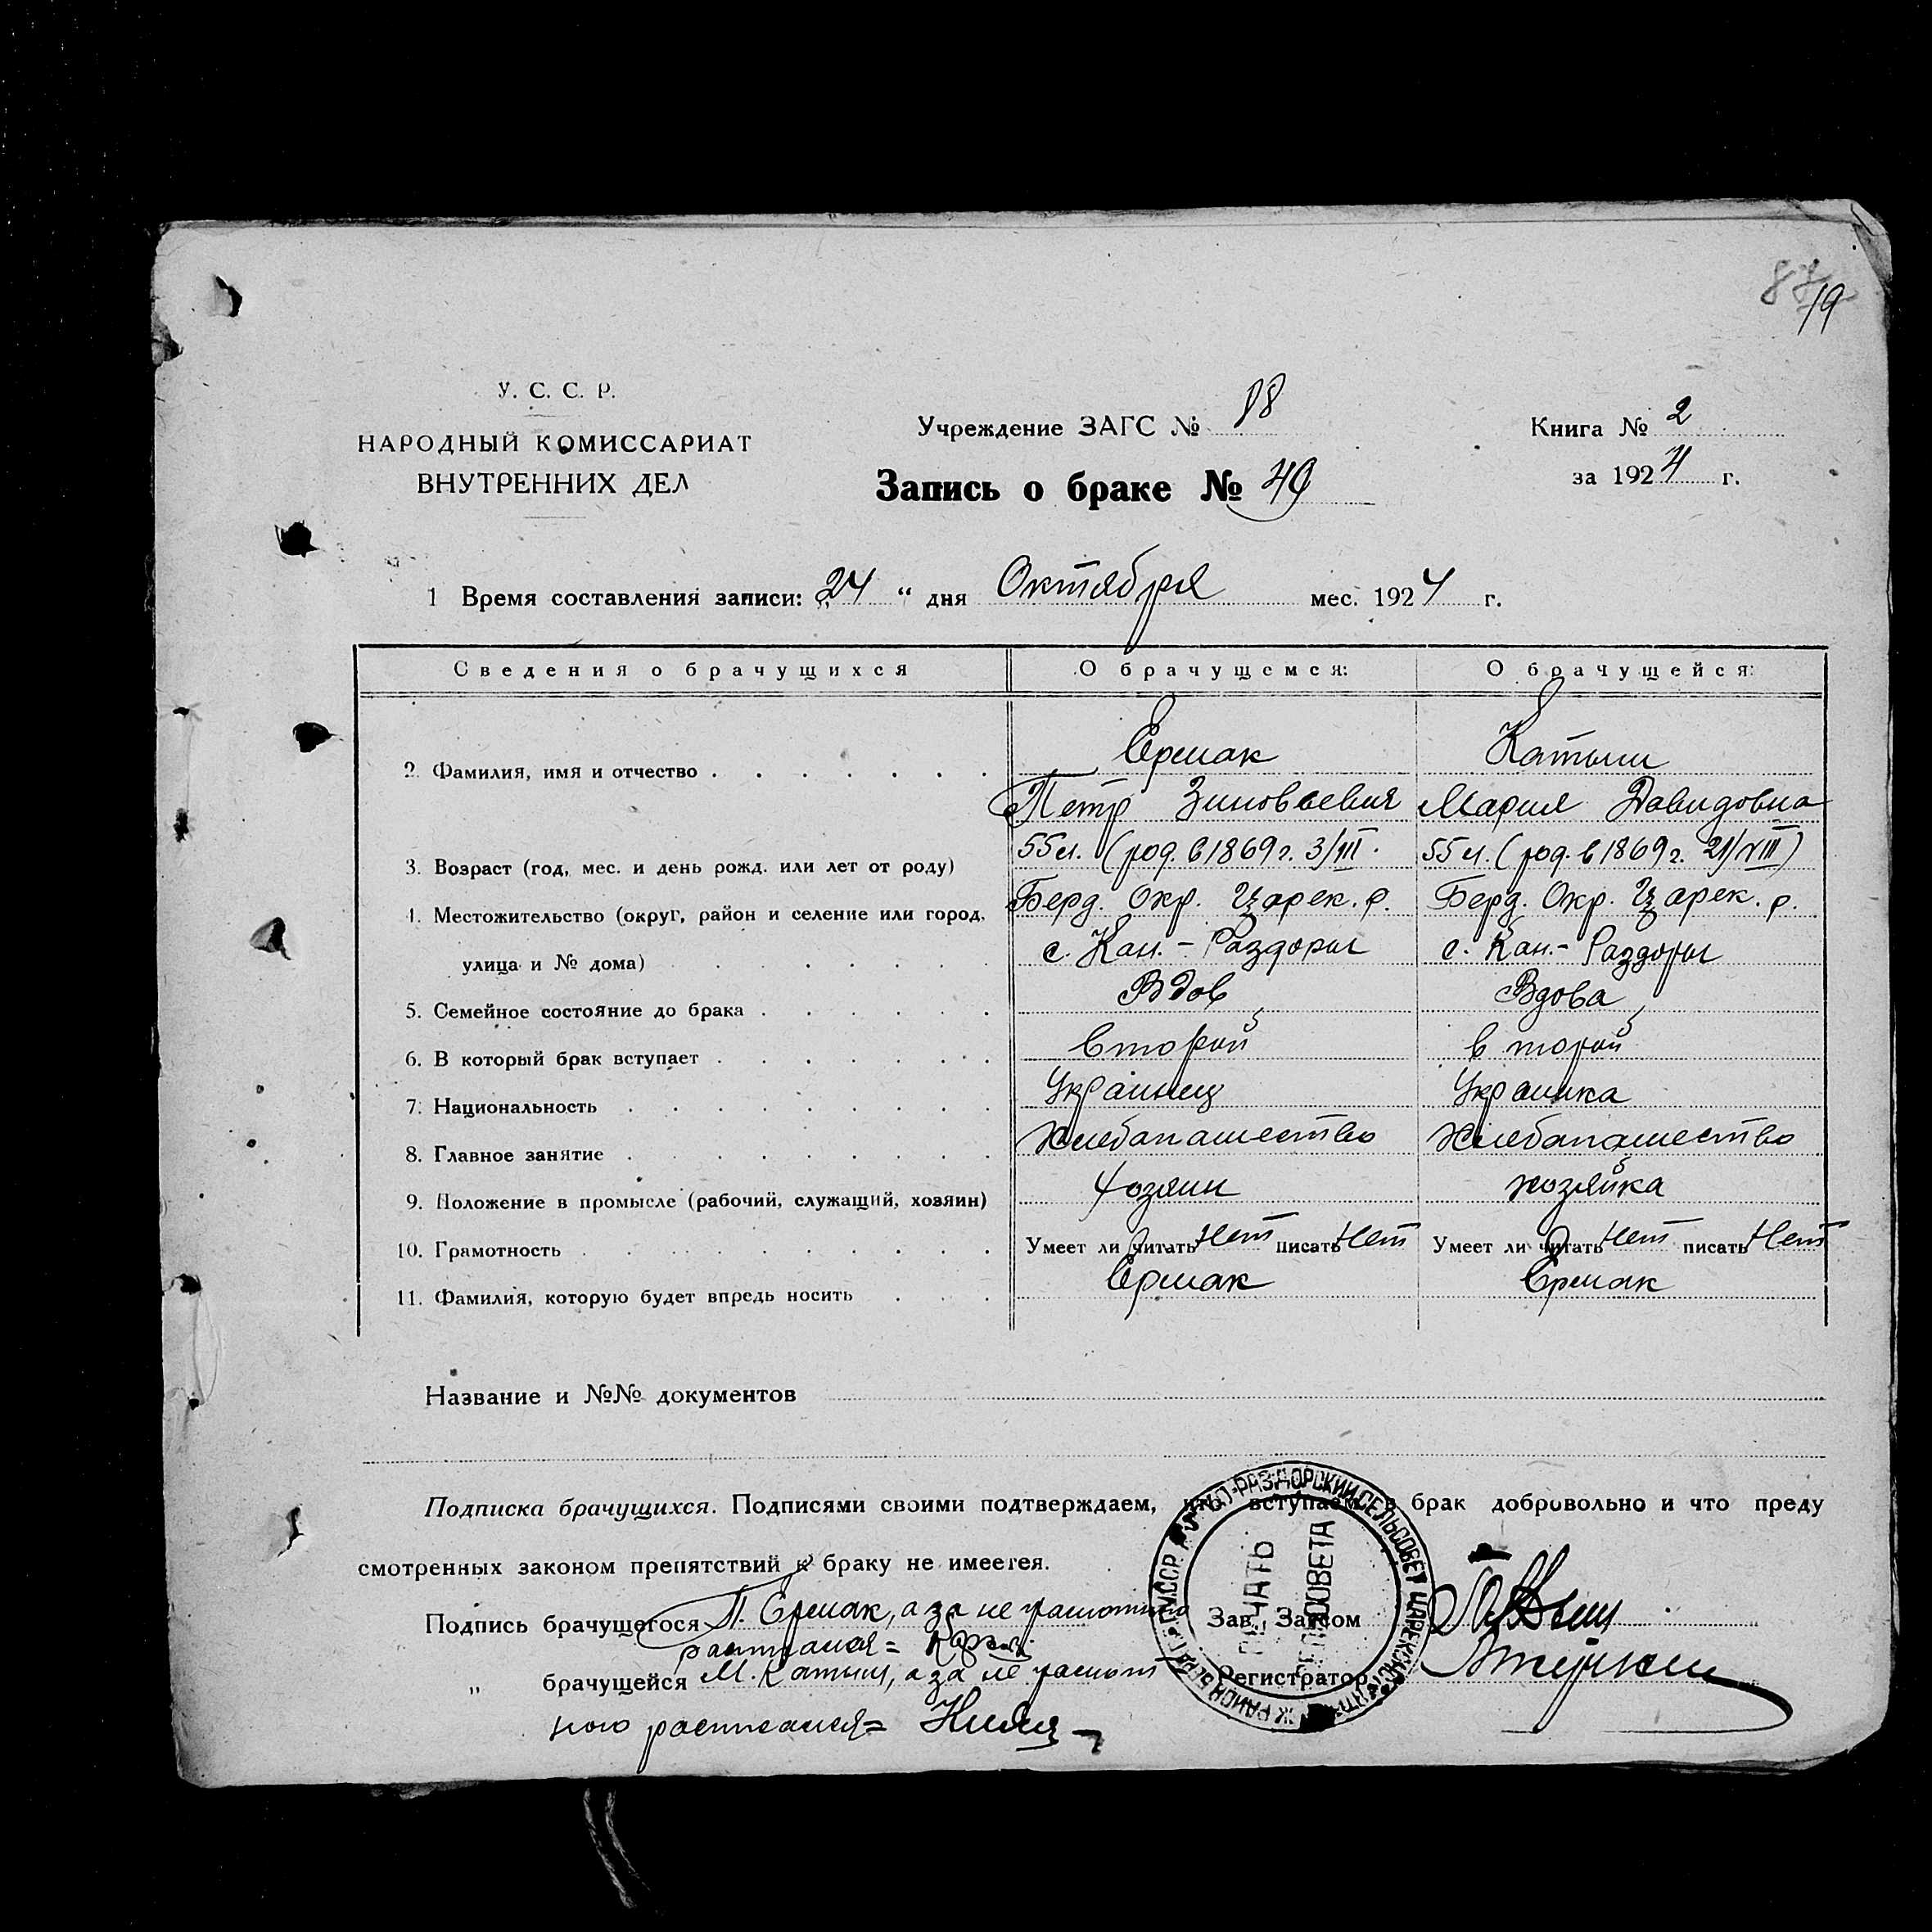 87
19
У. С. С. Р.
НАРОДНЫЙ КОМИССАРИАТ
ВНУТРЕННИХ ДЕЛ
Учреждение ЗАГС № 18
Книга № 2
Запись о браке № 49
за 1924 г.
1 Время составления записи: „24 “ дня Октября мес. 1924 г.
Сведения о брачущихся О брачущемся: О брачущейся:
Ермак Катыш
2. Фамилия, имя и отчество
Петр Зиновьевич Мария Давидовна
3. Возраст (год, мес. и день рожд. или лет от роду) 55 л. (род. в 1869 г. 3/III. 55 л. (род. в 1869 г. 21/VIII)
4. Местожительство (округ, район и селение или город, Берд. Окр. Царек. р. Берд. Окр. Царек. р.
улица и № дома) с. Кан.-Раздоры с. Кан.-Раздоры
5. Семейное состояние до брака Вдов Вдова
6. В который брак вступает второй второй
7. Национальность Украинец Украинка
8. Главное занятие Хлебопашество Хлебопашество
9. Положение в промысле (рабочий, служащий, хозяин) Хозяин хозяйка
10. Грамотность Умеет ли читать Нет писать Нет Умеет ли читать Нет писать Нет
11. Фамилия, которую будет впредь носить Ермак Ермак
Название и №№ документов
Подписка брачущихся. Подписями своими подтверждаем, что вступаем в брак добровольно и что преду
смотренных законом препятствий к браку не имеется.
Подпись брачущегося П. Ермак, а за неграмотного Зав. Загсом
расписался=
„ брачущейся М. Катыш, а за неграмот Регистратор
ного расписался=
РАЗДОРСКИЙ СЕЛЬСОВЕТ ЦАРЕК
УССР
ПЕЧАТЬ
СЕЛЬСОВЕТА